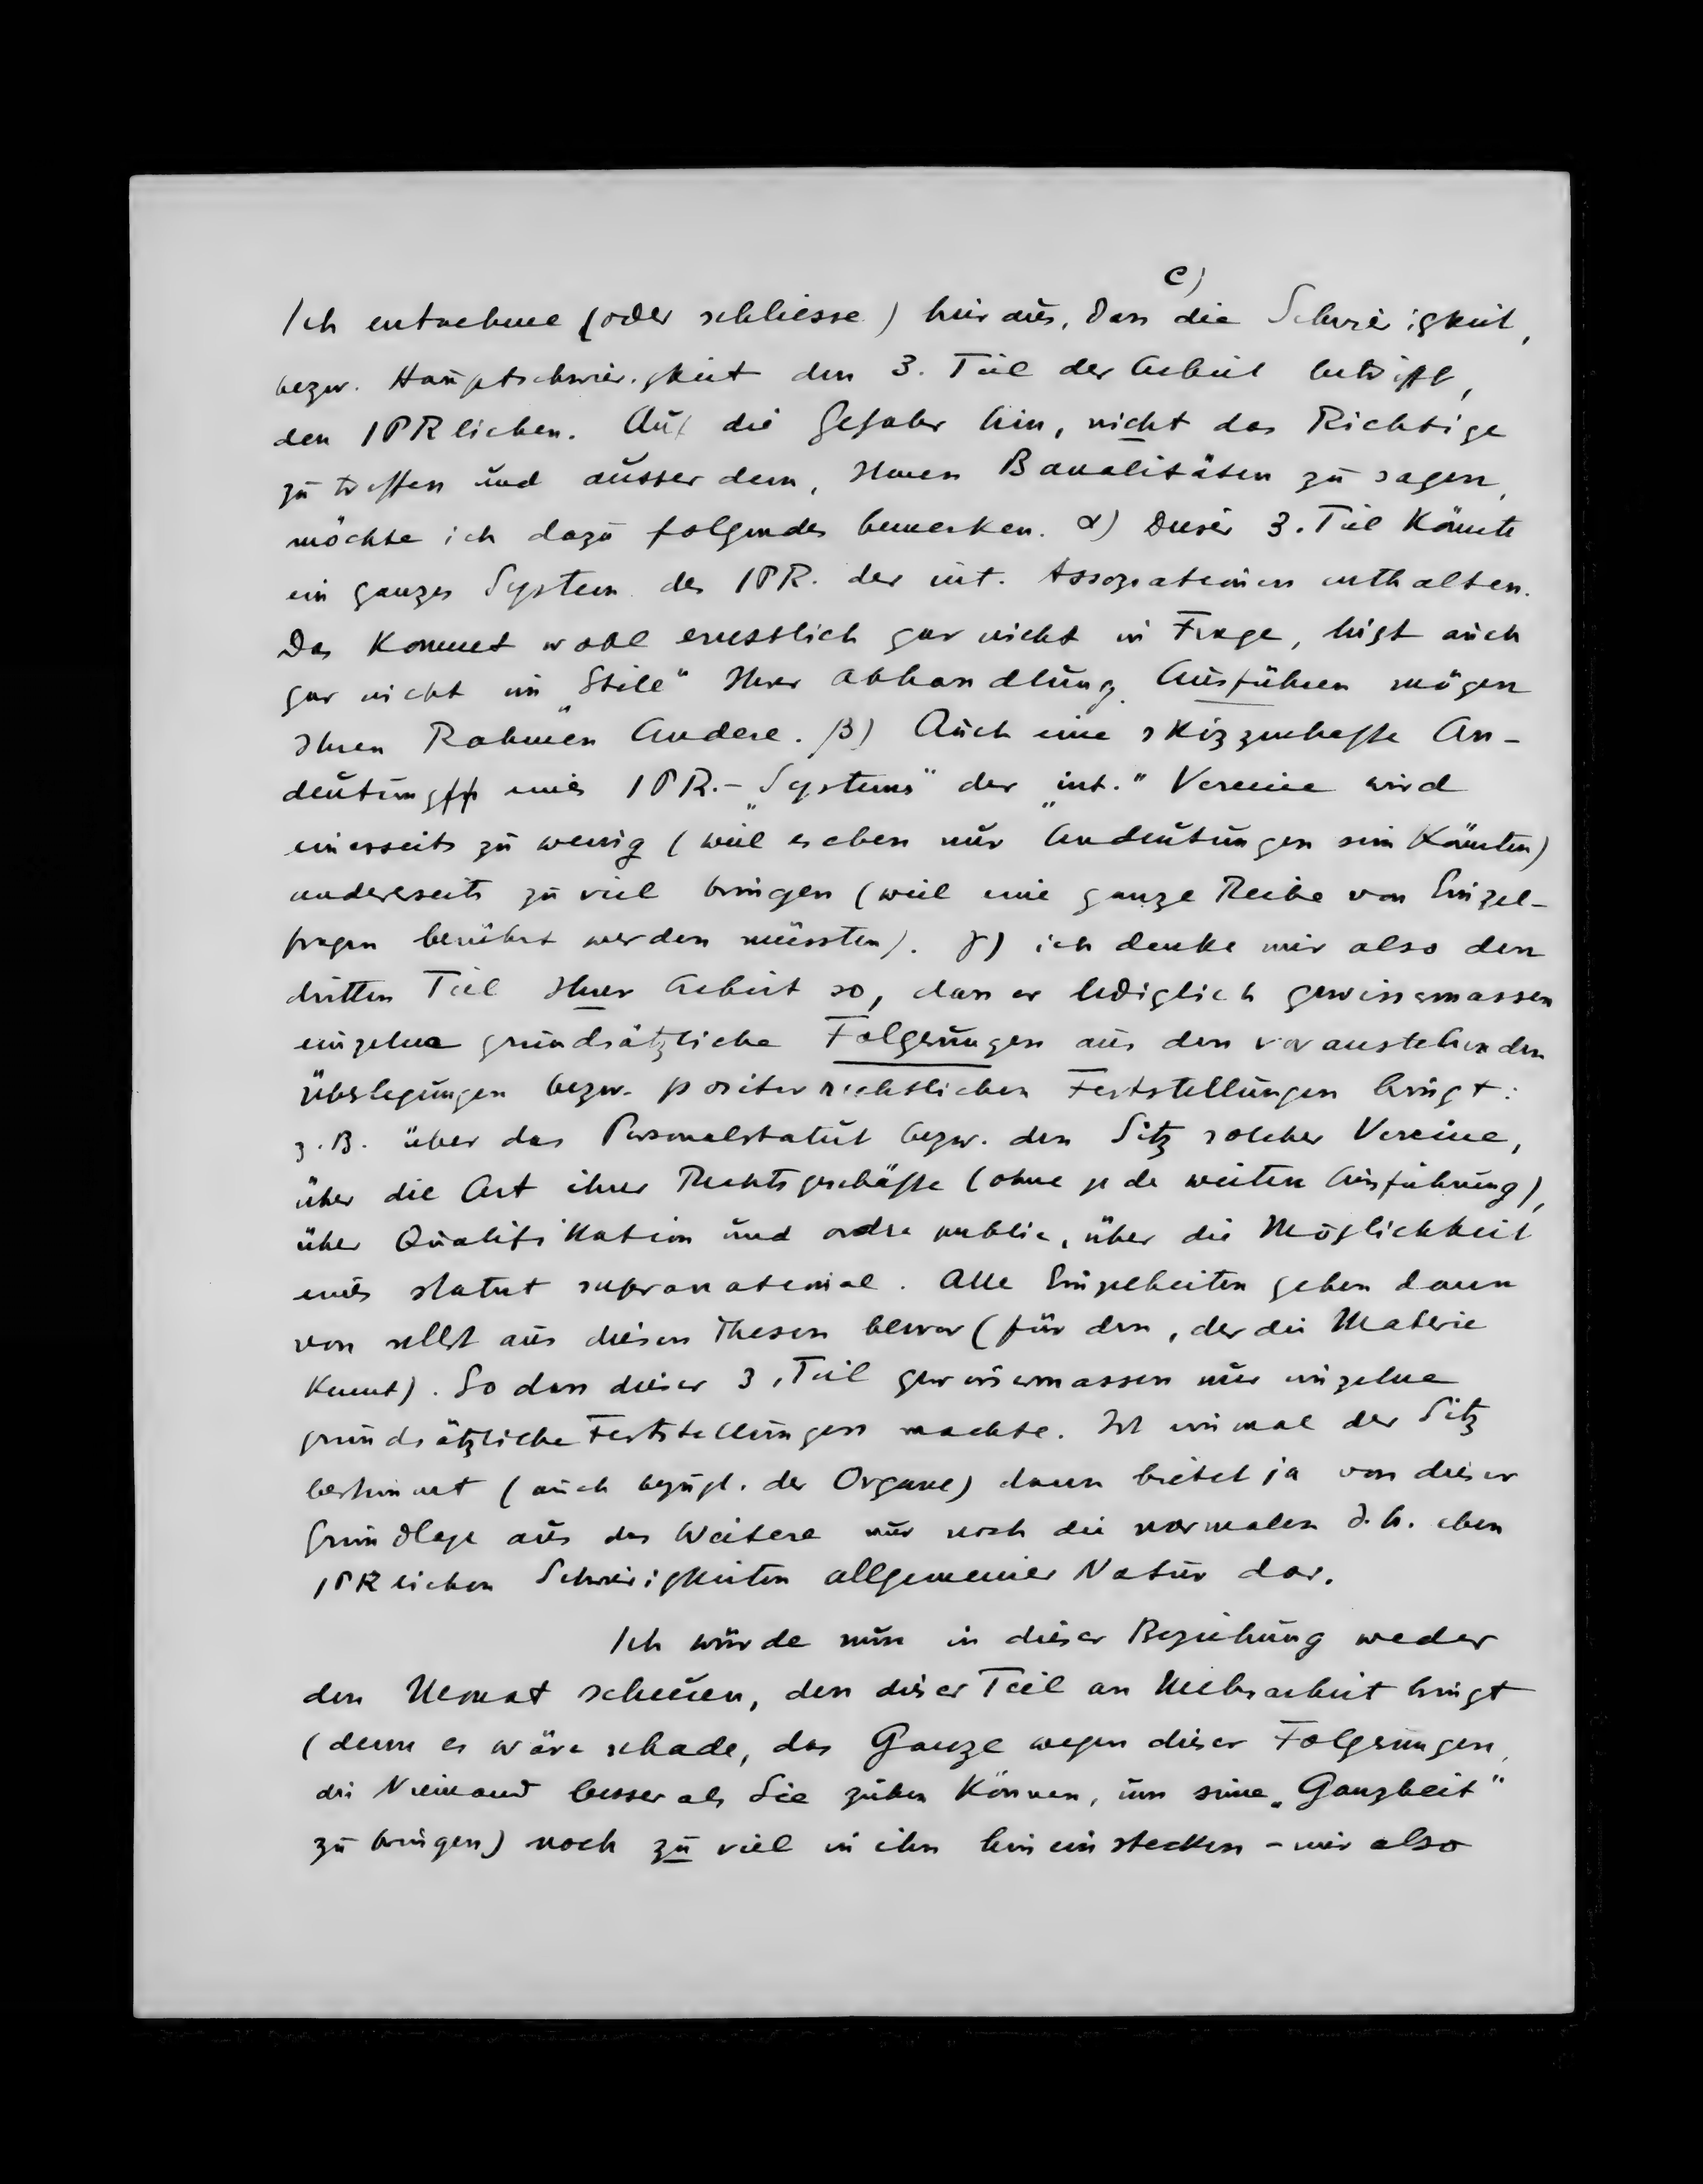 c)
Ich entnehme (oder schliesse) hieraus, dass die Schwierigkeit,
bezw. Hauptschwierigkeit den 3. Teil der Arbeit betrifft,
den IPRlichen. Auf die Gefahr hin, nicht das Richtige
zu treffen und ausserdem, Ihnen Banalitäten zu sagen,
möchte ich dazu folgendes bemerken. α) Dieser 3. Teil könnte
ein ganzes System des IPR. der int. Assoziationen enthalten.
Das kommt wohl ernstlich gar nicht in Frage, liegt auch
gar nicht im „Stile“ Ihrer Abhandlung. Ausführen mögen
Ihren Rahmen Andere. β) Auch eine skizzenhafte An-
deutung eines IPR.-„Systems“ der „int.“ Vereine wird
einerseits zu wenig (weil es eben nur Andeutungen sein könnten)
andererseits zu viel bringen (weil eine ganze Reihe von Einzel-
fragen berührt werden müssten). γ) ich denke mir also den
dritten Teil Ihrer Arbeit so, dass er lediglich gewissermassen
einzelne grundsätzliche Folgerungen aus den voranstehenden
Überlegungen bezw. positivrechtlichen Feststellungen bringt:
z.B. über das Personalstatut bezw. den Sitz solcher Vereine,
über die Art ihrer Rechtsgeschäfte (ohne jede weitere Ausführung),
über Qualifikation und ordre public, über die Möglichkeit
eines statut supranational. Alle Einzelheiten gehen dann
von selbst aus diesen Thesen hervor (für den, der die Materie
kennt). So dass dieser 3. Teil gewissermassen nur einzelne
grundsätzliche Feststellungen machte. Ist einmal der Sitz
bestimmt (auch bezügl. der Organe) dann bietet ja von dieser
Grundlage aus das Weitere nur noch die normalen d.h. eben
IPRlichen Schwierigkeiten allgemeiner Natur dar.
Ich würde nun in dieser Beziehung weder
den Monat scheuen, den dieser Teil an Mehrarbeit bringt
(denn es wäre schade, das Ganze wegen dieser Folgerungen,
die Niemand besser als Sie ziehen können, um seine „Ganzheit“
zu bringen) noch zu viel in ihn hineinstecken - mir also